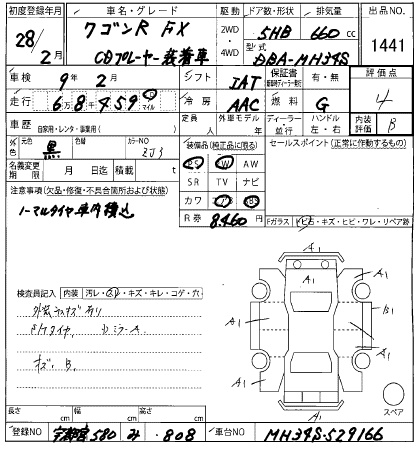 初度登録年月 車名・グレード 駆動 ドア数・形状 排気量 出品NO.
28年2月 ワゴンR FX 2WD 4WD 5HB 660cc 1441
CDプレーヤー装着車 型式 DBA-MH34S
車検 9年2月 シフト IAT 保証書 有・無 評価点
走行 6万8千459 マイル 冷房 AAC 燃料 G 4
車歴 自家用・レンタ・事業用( ) 定員 人 外車モデル 年 ディーラー 並行 ハンドル 左・右 内装評価 B
外色 元色 黒 色替 カラーNO ZJ3 装備品(純正品に限る) セールスポイント(正常に作動するもの)
PS PW AW
名義変更期限 月 日迄 積載 t SR TV ナビ
注意事項(欠品・修復・不具合箇所および状態) カワ
ノーマルタイヤ車内積込 R券 8,460円 Fガラス トビ石・キズ・ヒビ・ワレ・リペア跡
A1
A1 A1
検査員記入 内装 汚レ・スレ・キズ・キレ・コゲ・穴
A1 B1
A1 A1
キズ、B、
A1
スペア
長さ cm 幅 cm 高さ cm
登録NO 宇都宮 580 み 808 車台NO MH34S-529166